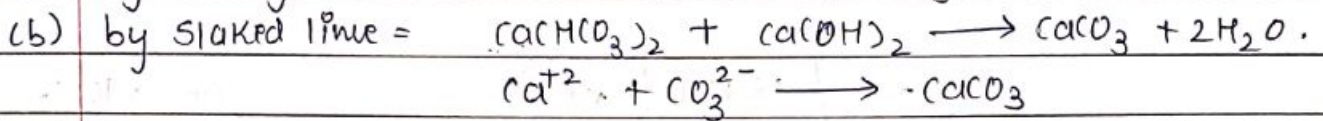 (b) by slaked lime = Ca(HCO₃)₂ + Ca(OH)₂ ⟶ CaCO₃ + 2H₂O.
Ca⁺² + CO₃²⁻ ⟶ CaCO₃